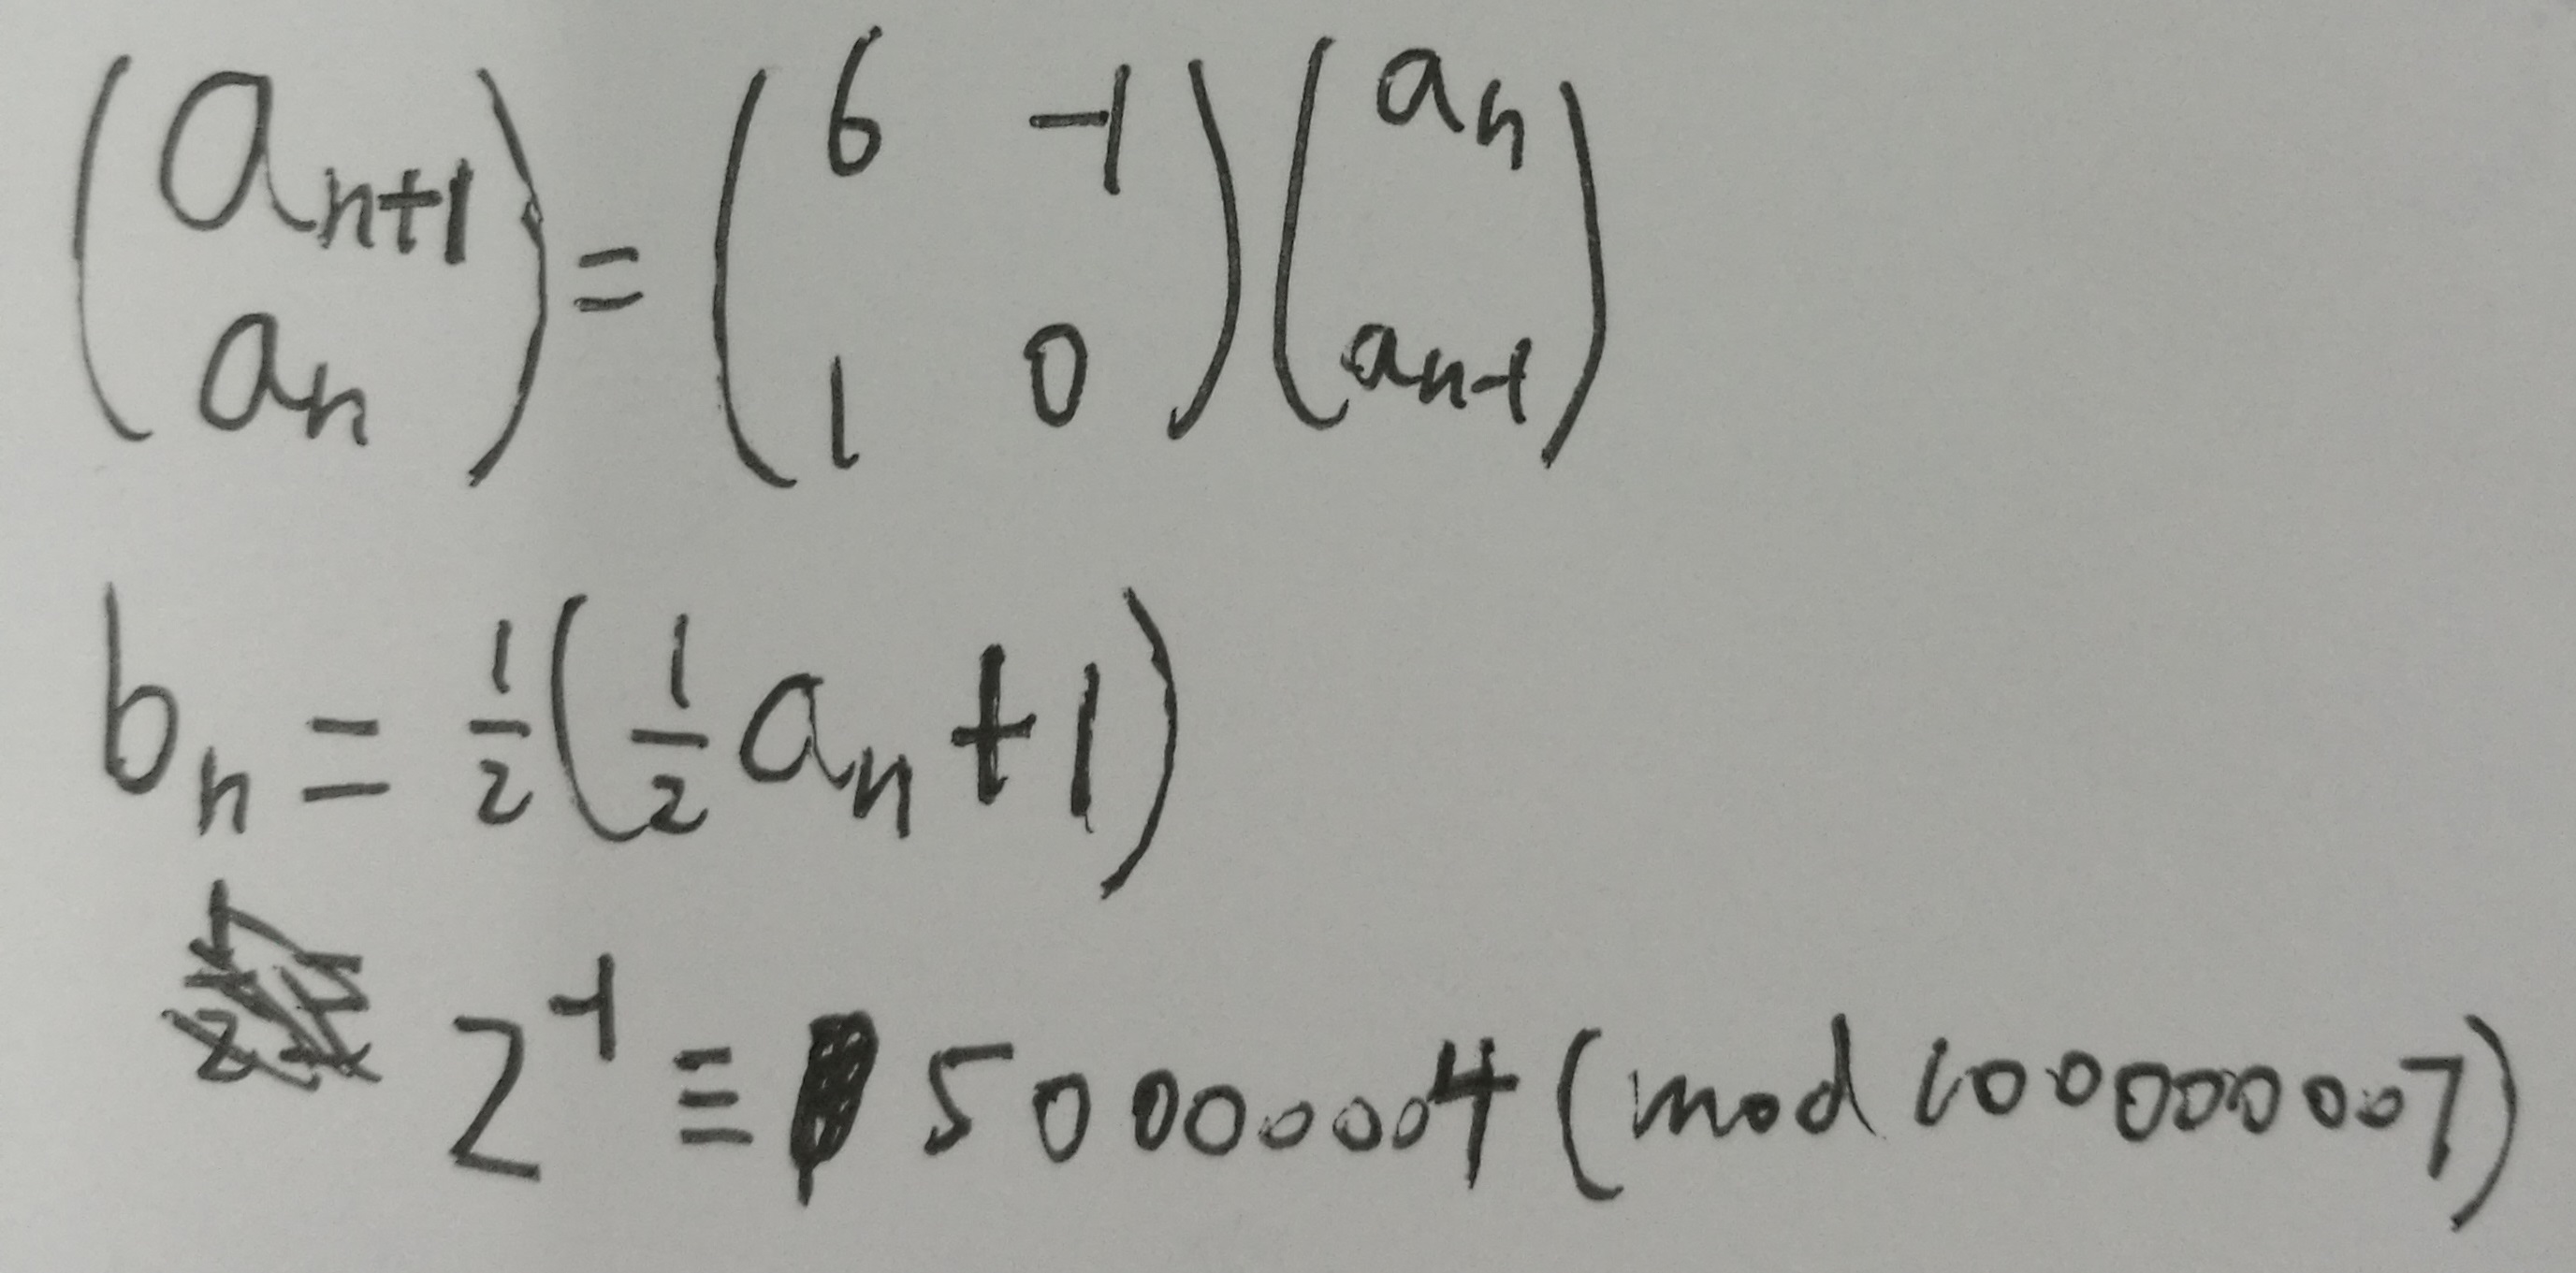 (a_{n+1} a_n) = (6 -1 1 0)(a_n a_{n-1})
b_n = 1/2(1/2 a_n + 1)
2^{-1} ≡ 500000004 (mod 1000000007)